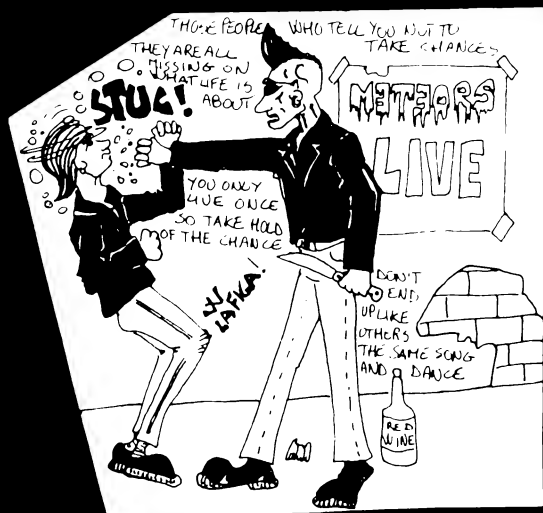 THOSE PEOPLE WHO TELL YOU NOT TO
TAKE CHANCES
THEY ARE ALL
MISSING ON
WHAT LIFE IS
ABOUT
STUC!
METEORS
LIVE
YOU ONLY
LIVE ONCE
SO TAKE HOLD
OF THE CHANCE
LAFKA!
DON'T
END
UP LIKE
OTHERS
THE SAME SONG
AND DANCE
RED
WINE